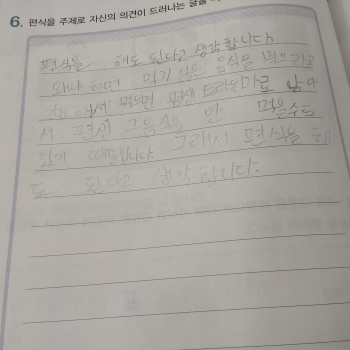 6. 편식을 주제로 자신의 의견이 드러나는 글을
편식을 해도 된다고 생각합니다.
왜냐하면 먹기 싫은 음식을 먹으라고
해서 먹으면 평생 트라우마로 남아
서 평생 그 음식을 안 먹을수도
있기 때문입니다. 그래서 편식을 해
도 된다고 생각합니다.